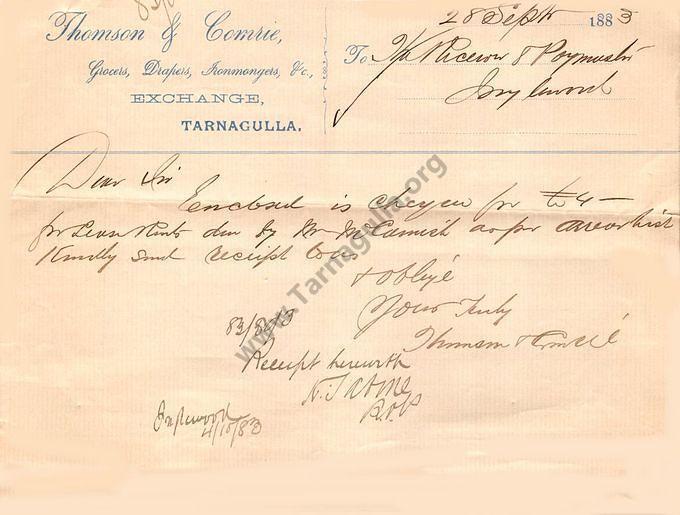 28 Sept 1883
Thomson & Comrie,
Grocers, Drapers, Ironmongers, &c.,
EXCHANGE,
TARNAGULLA.
To The Receiver & Paymaster
Inglewood
Dear Sir
Enclosed is cheque for £4 —
for Lease Rents due by Mr McCamish as per arrear list
Kindly send receipt to us
& oblige
Yours truly
Thomson & Comrie
Receipt herewith
R.P.
Inglewood
4/10/83
www.Tarnagulla.org